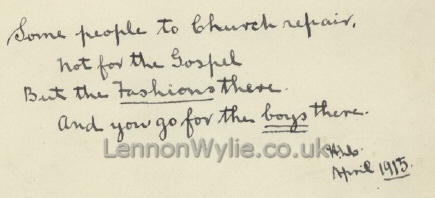 Some people to Church repair,
Not for the Gospel
But the Fashions there.
And you go for the boys there.
LennonWylie.co.uk
April 1915